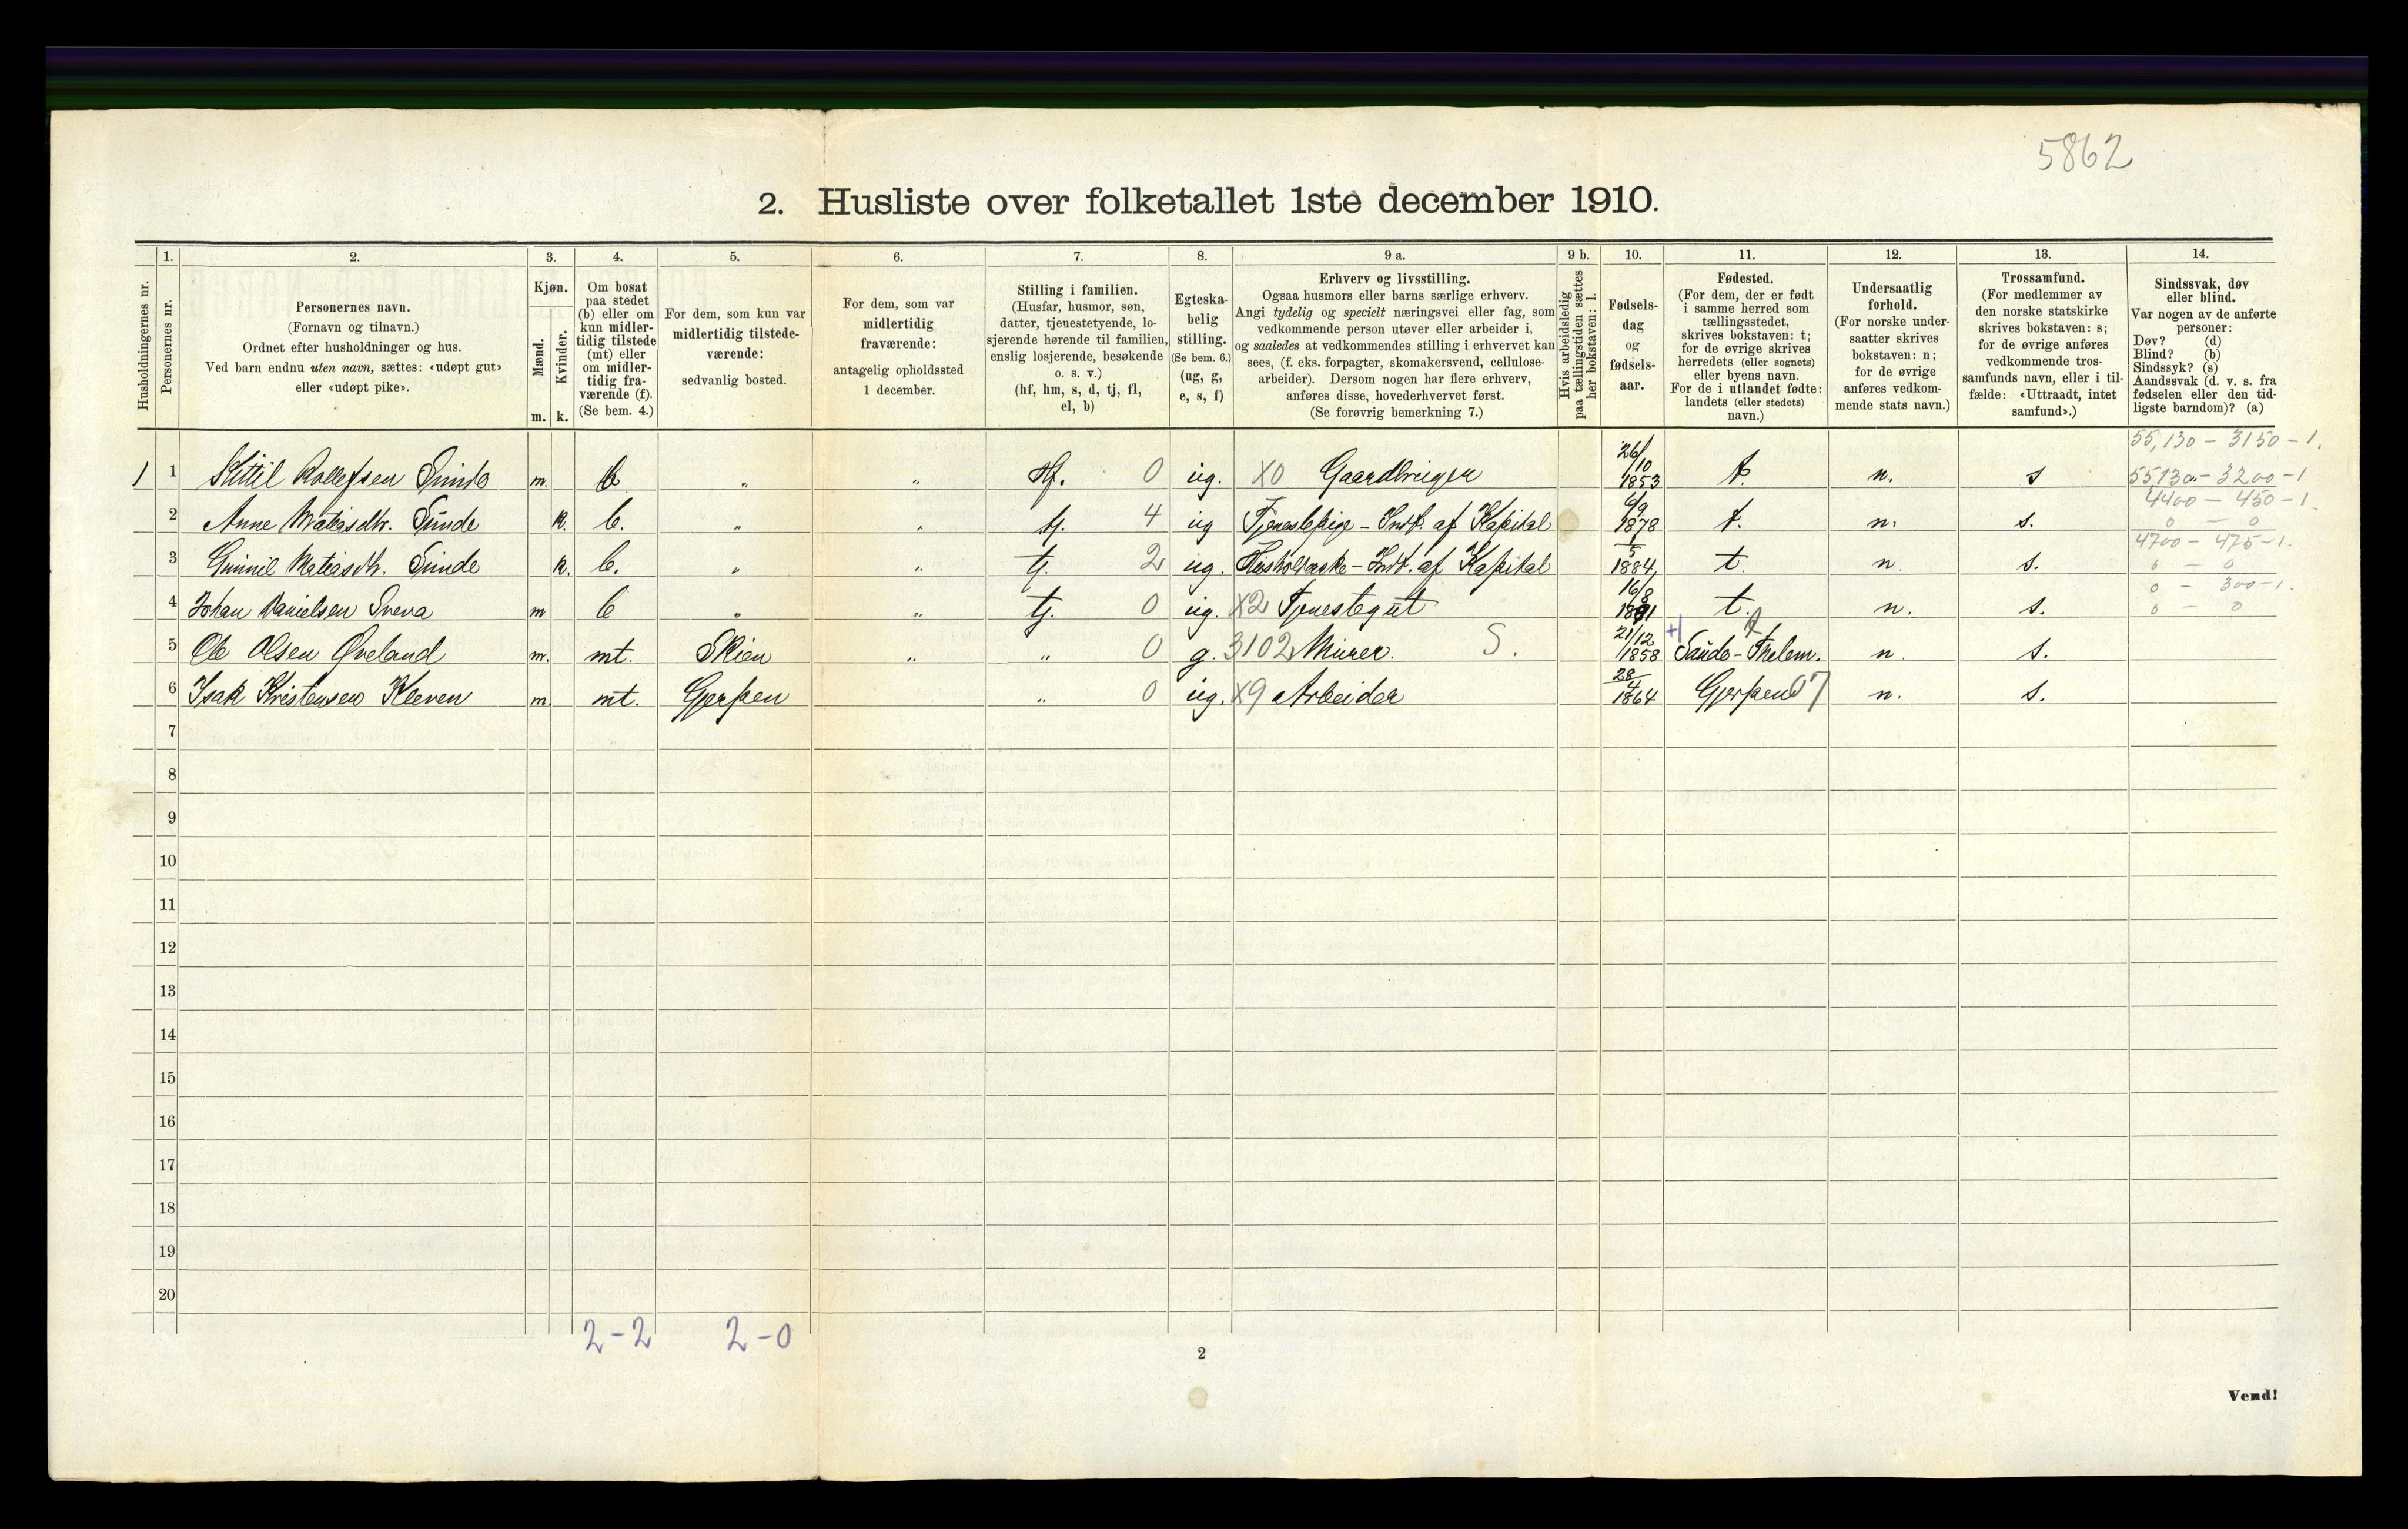 5862
2. Husliste over folketallet 1ste december 1910.
1. 2. 3. 4. 5. 6. 7. 8. 9 a. 9 b. 10. 11. 12. 13. 14.
Husholdningernes nr.
Personernes nr.
Personernes navn.
(Fornavn og tilnavn.)
Ordnet efter husholdninger og hus.
Ved barn endnu uten navn, sættes: «udøpt gut»
eller «udøpt pike».
Kjøn.
Mænd.
Kvinder.
m. k.
Om bosat
paa stedet
(b) eller om
kun midler-
tidig tilstede
(mt) eller
om midler-
tidig fra-
værende (f).
(Se bem. 4.)
For dem, som kun var
midlertidig tilstede-
værende:
sedvanlig bosted.
For dem, som var
midlertidig
fraværende:
antagelig opholdssted
1 december.
Stilling i familien.
(Husfar, husmor, søn,
datter, tjenestetyende, lo-
sjerende hørende til familien,
enslig losjerende, besøkende
o. s. v.)
(hf, hm, s, d, tj, fl,
el, b)
Egteska-
belig
stilling.
(Se bem. 6.)
(ug, g,
e, s, f)
Erhverv og livsstilling.
Ogsaa husmors eller barns særlige erhverv.
Angi tydelig og specielt næringsvei eller fag, som
vedkommende person utøver eller arbeider i,
og saaledes at vedkommendes stilling i erhvervet kan
sees, (f. eks. forpagter, skomakersvend, cellulose-
arbeider). Dersom nogen har flere erhverv,
anføres disse, hovederhvervet først.
(Se forøvrig bemerkning 7.)
Hvis arbeidsledig
paa tællingstiden sættes
her bokstaven: l.
Fødsels-
dag
og
fødsels-
aar.
Fødested.
(For dem, der er født
i samme herred som
tællingsstedet,
skrives bokstaven: t;
for de øvrige skrives
herredets (eller sognets)
eller byens navn.
For de i utlandet fødte:
landets (eller stedets)
navn.)
Undersaatlig
forhold.
(For norske under-
saatter skrives
bokstaven: n;
for de øvrige
anføres vedkom-
mende stats navn.)
Trossamfund.
(For medlemmer av
den norske statskirke
skrives bokstaven: s;
for de øvrige anføres
vedkommende tros-
samfunds navn, eller i til-
fælde: «Uttraadt, intet
samfund».)
Sindssvak, døv
eller blind.
Var nogen av de anførte
personer:
Døv? (d)
Blind? (b)
Sindssyk? (s)
Aandssvak (d. v. s. fra
fødselen eller den tid-
ligste barndom)? (a)
55,130 - 3150 - 1.
1 1 Kittil Rollefsen Sunde m. b " " Hf. 0 ug. X0 Gaardbruger 26/10 1853 t. n. s 55130 - 3200 - 1
4400 - 450 - 1.
2 Anne Matiasdtr. Sunde k. b. " " tj. 4 ug Tjenestepige - Indt. af Kapital 6/9 1878 t. n. s. 0 - 0
4700 - 475 - 1.
3 Gunnil Matiasdtr. Sunde k. b. " " tj. 2 ug. Husholderske - Indt. af Kapital 1/5 1884 t. n. s. 0 - 0
0 - 300 - 1.
4 Johan Danielsen Sveva m b " " tj. 0 ug. X2 Tjenestegut 16/8 1891 t. n. s. 0 - 0
5 Ole Olsen Øveland m. mt. Skien " " 0 g. 3102 Murer. S. 21/12 1858 +1 Saude - Thelem. n. s.
6 Isak Kristensen Kleven m. mt. Gjerpen " 0 ug. X9 Arbeider 28/4 1864 Gjerpen 07 n. s.
7
8
9
10
11
12
13
14
15
16
17
18
19
20
2-2 2-0
2
Vend!